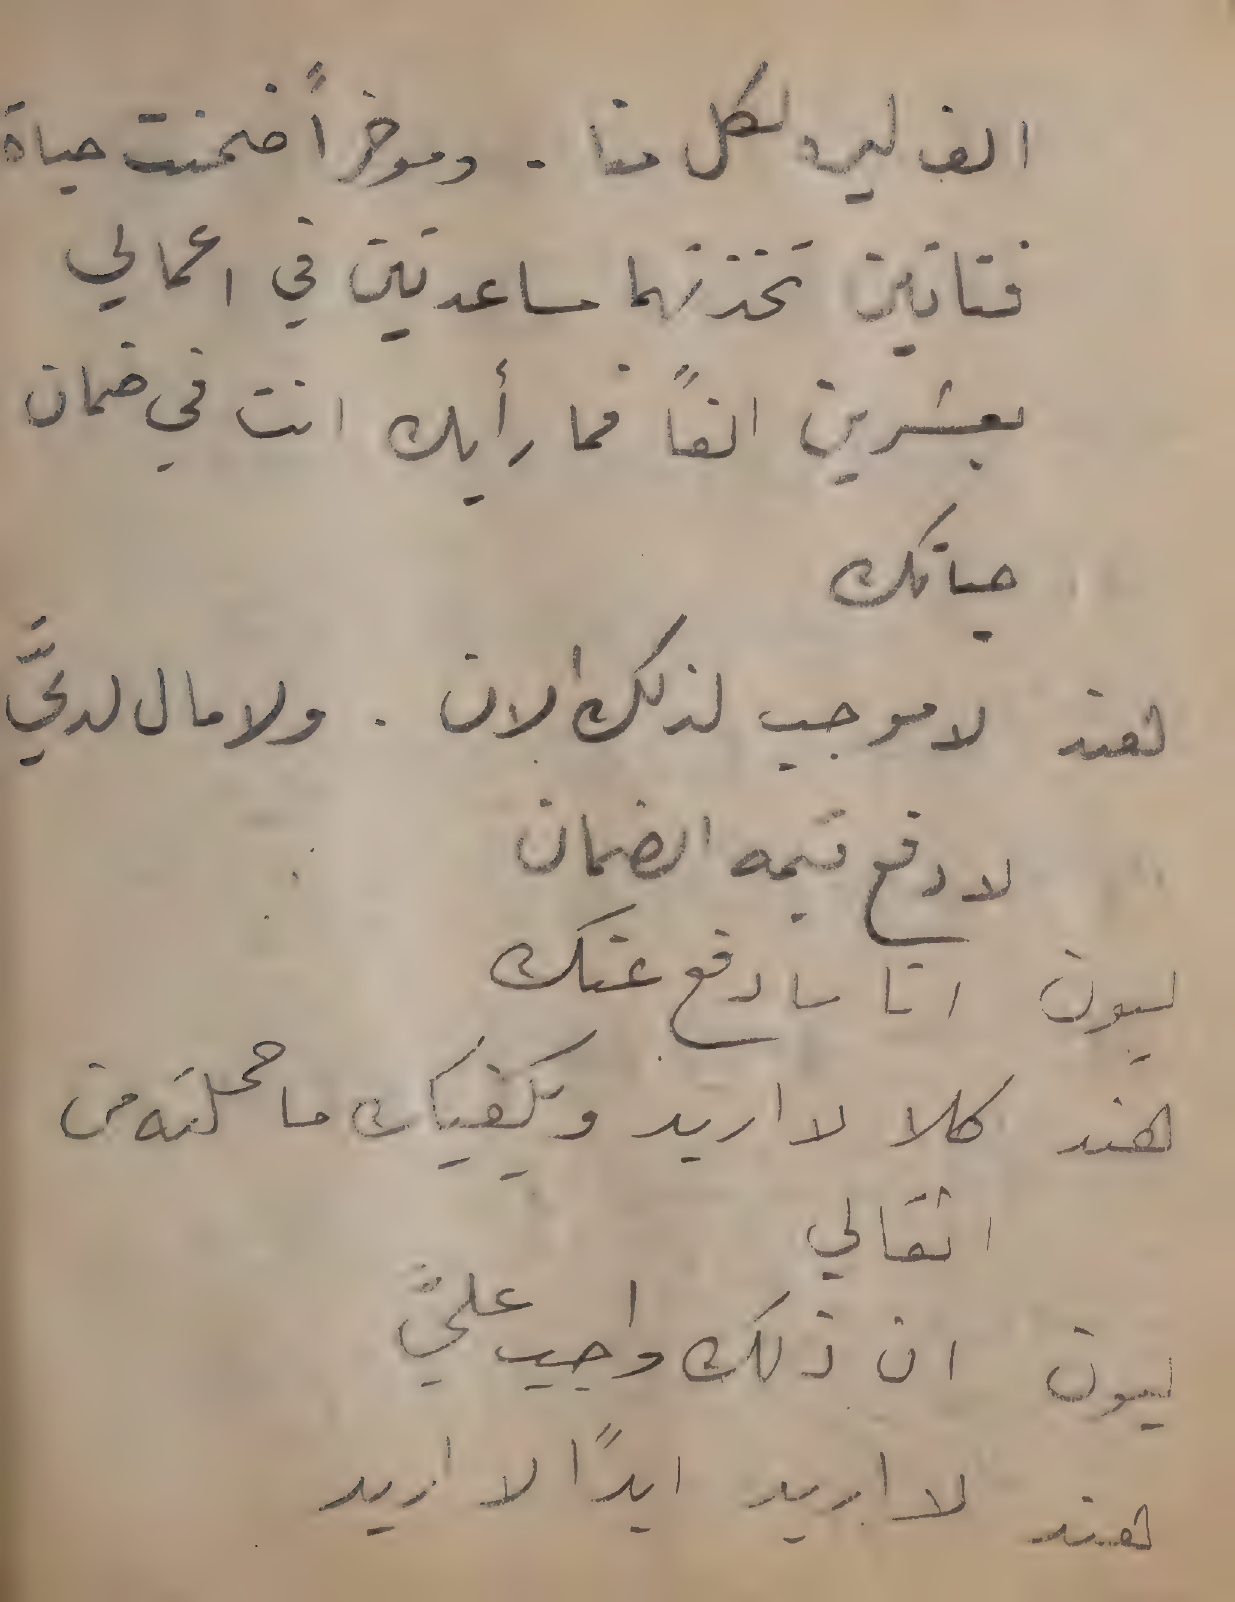 الف ليره لكل منا . وموخراً ضمنت حياة
فتاتين تخذتهما مساعدتين في اعمالي
بعشرين الفاً فما رأيك انت في ضمان
حياتك
هند لا موجب لذلك الان . ولا مال لديَّ
لادفع قيمه الضمان
ليون انا سادفع عنك
هند كلا لا اريد ويكفيك ما حملته من
اثقالي
ليون ان ذلك واجب عليَّ
هند لا اريد ابداً لا اريد